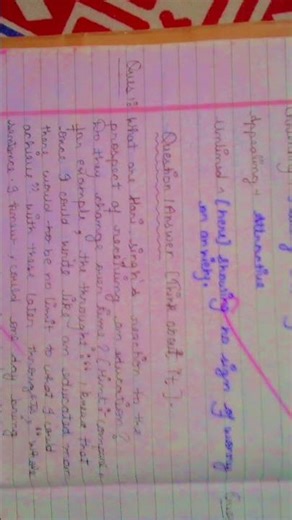 Appealing → Attractive
Unlined → (here) showing no sign of worry
or anxiety.
Question / Answer (Think about it)
Ques 1: What are Hari Singh's reaction to the
prospect of receiving an education?
Do they change over time? (Hint: compare,
for example, the thought: "I knew that
once I could write like an educated man
there would be no limit to what I could
achieve" with these later thoughts: "Whole
sentence, I knew, could one day bring